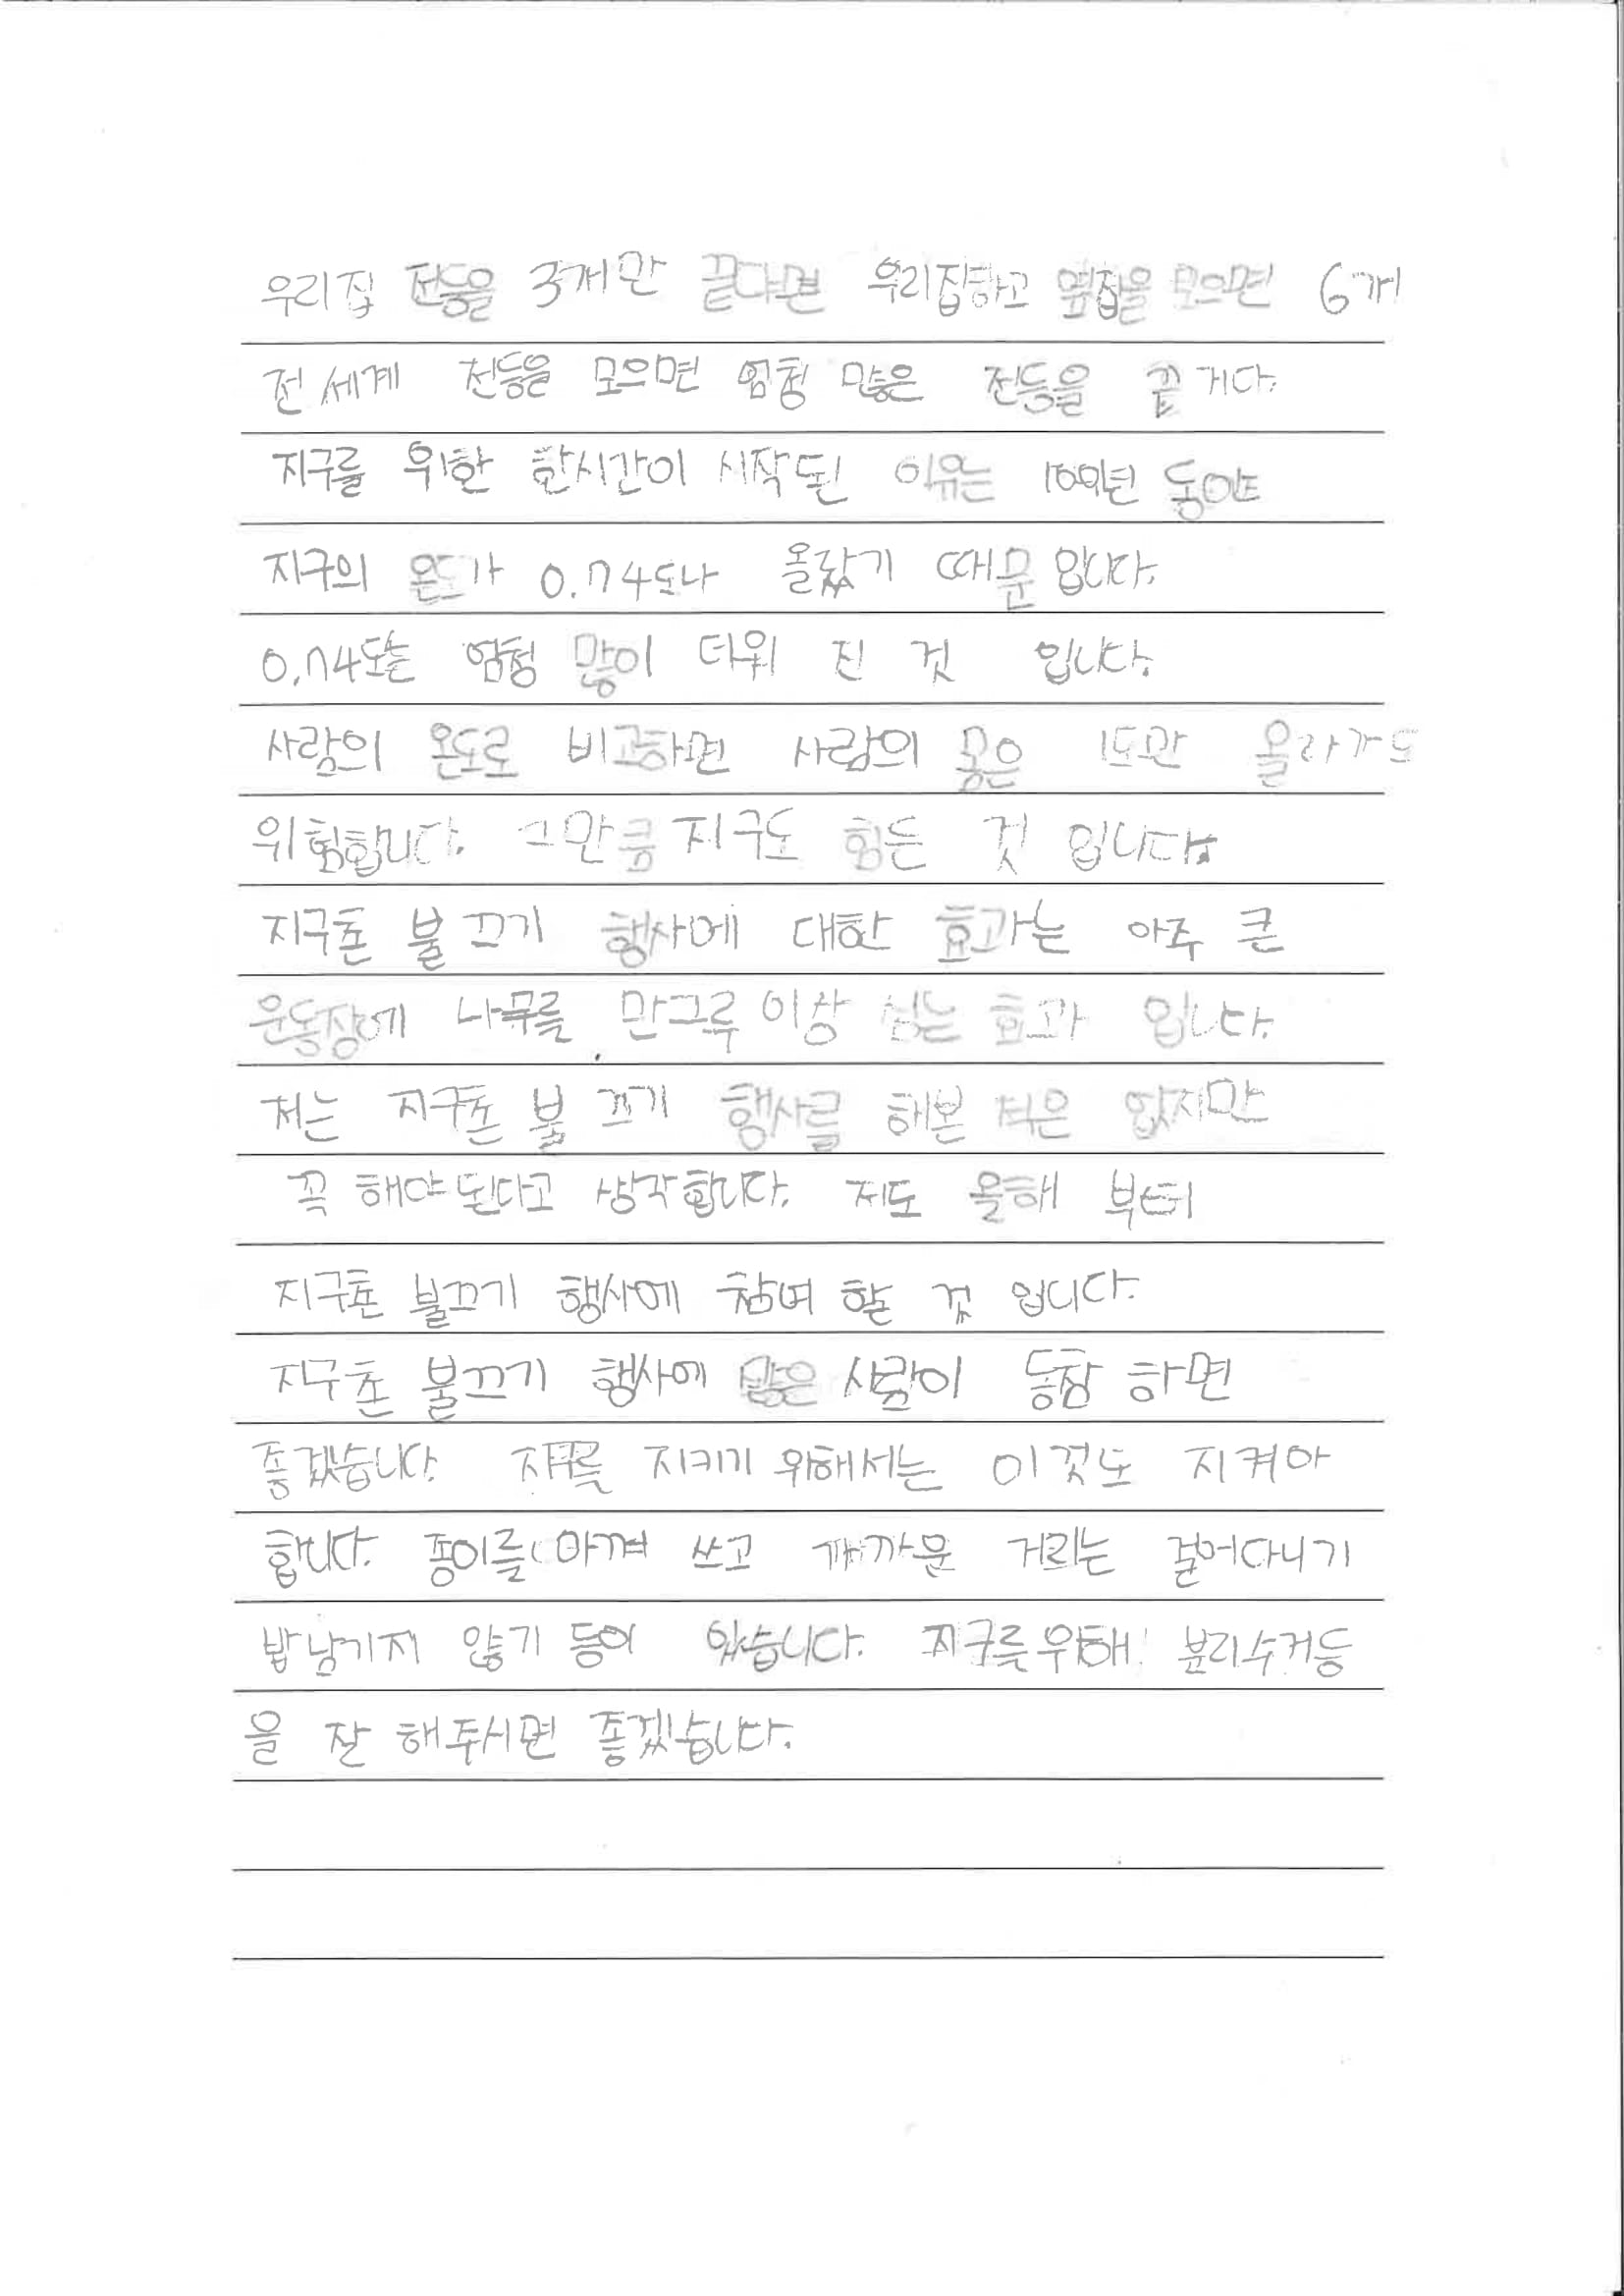 우리집 전등을 3개만 끝다면 우리집하고 옆집을 모으면 6개
전 세계 전등을 모으면 엄청 많은 전등을 끝 거다.
지구를 위한 한시간이 시작된 이유는 100년 동안
지구의 온도가 0.74도나 올랐기 때문 입니다.
0.74도는 엄청 많이 더워 진 것 입니다.
사람의 온도로 비교하면 사람의 몸은 1도만 올라가도
위험합니다. 그만큼 지구도 힘든 것 입니다.
지구촌 불 끄기 행사에 대한 효과는 아주 큰
운동장에 나무를 만그루 이상 심는 효과 입니다.
저는 지구촌 불 끄기 행사를 해본 적은 없지만
꼭 해야된다고 생각합니다. 저도 올해 부터
지구촌 불끄기 행사에 참여 할 것 입니다.
지구촌 불끄기 행사에 많은 사람이 동참 하면
좋겠습니다. 지구를 지키기 위해서는 이것도 지켜야
합니다. 종이를 아껴 쓰고 가까운 거리는 걸어다니기
밥 남기지 않기 등이 있습니다. 지구를 위해 분리수거등
을 잘 해주시면 좋겠습니다.